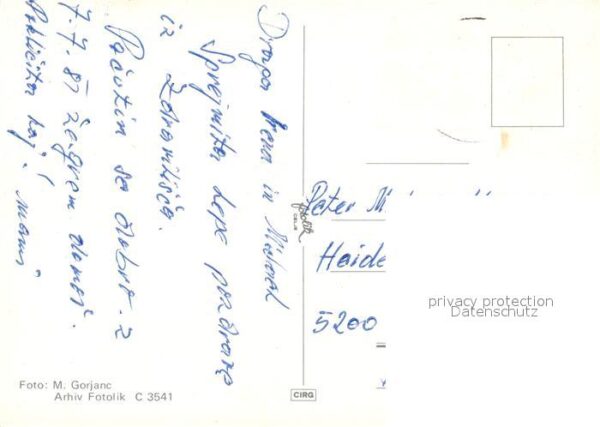 Draga Irena in Michael
Sprejmita lepe pozdrave
iz Zdravilišča.
Počutim se dobro. Z
7.7.87 zagrem domov.
Pokličita kaj! mami
Foto: M. Gorjanc
Arhiv Fotolik C 3541
fotolik
celje
CIRG
Peter M
Heide
5200
privacy protection
Datenschutz